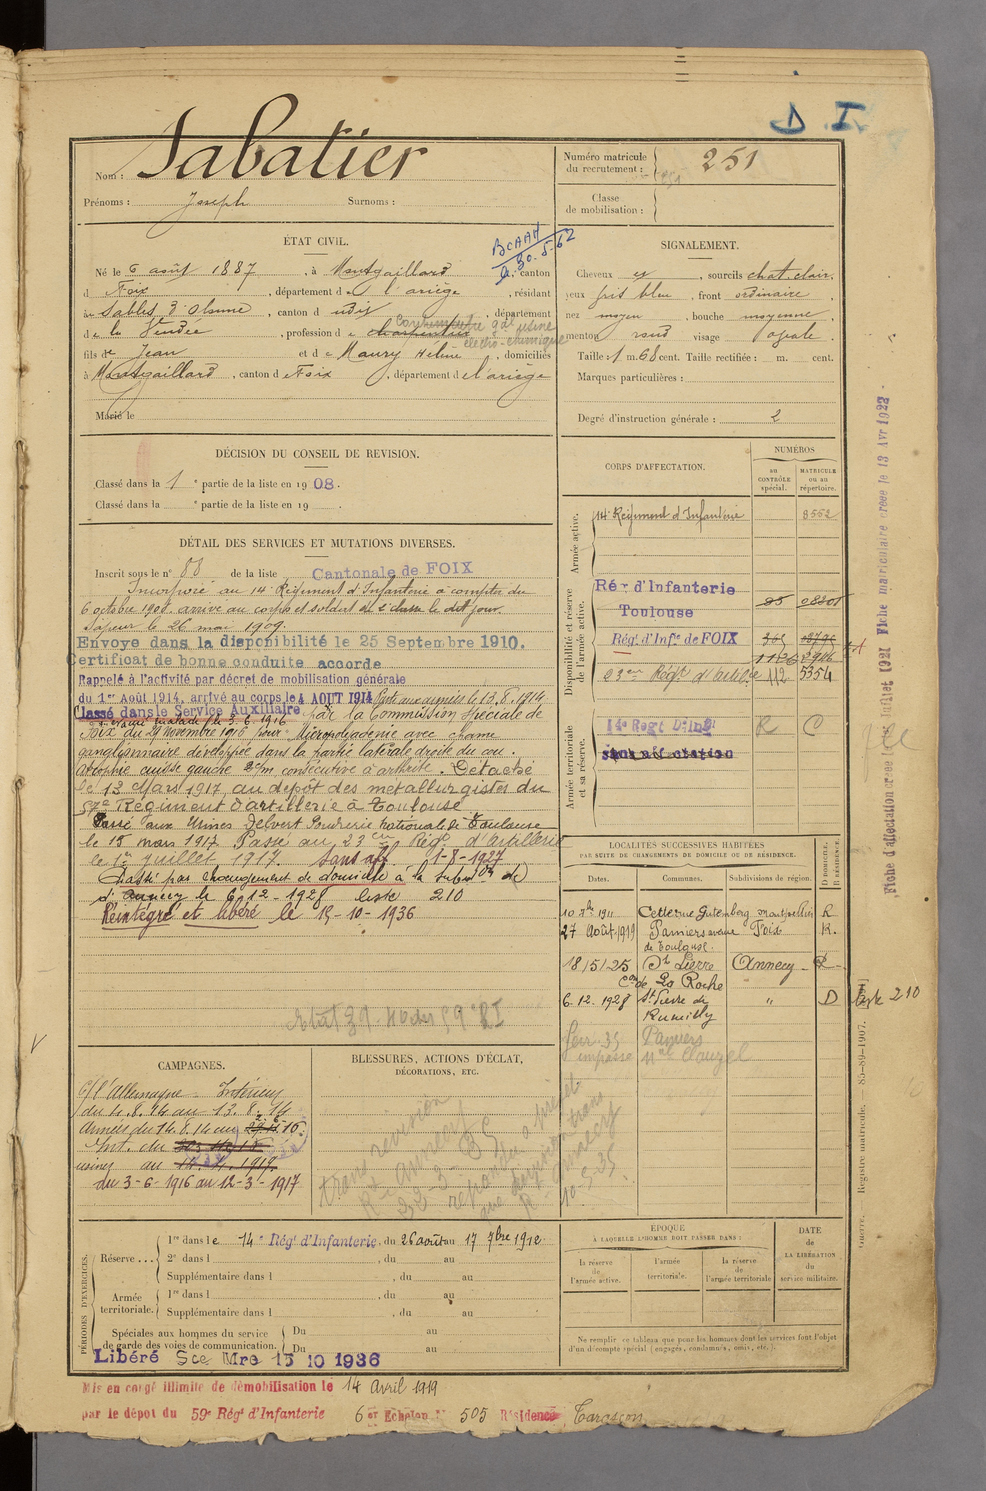 D. I.
Nom : Sabatier
Prénoms : Joseph Surnoms :
Numéro matricule du recrutement : 251
Classe de mobilisation :
ÉTAT CIVIL.
BCAAM
30.5.62
Né le 6 août 1887, à Montgaillard, canton
d Foix, département d e l'ariège, résidant
à Sables d'Olonne, canton d udis, département
d e la Vendée, profession d e charpentier
Contremaitre gal usine
électro-chimique
fils de Jean et d e Maury Hélène, domiciliés
à Montgaillard, canton d e Foix, département d e l'ariège
Marié le
SIGNALEMENT.
Cheveux et, sourcils chat. clair.
yeux gris bleu, front ordinaire,
nez moyen, bouche moyenne,
menton rond visage ovale.
Taille : 1 m. 68 cent. Taille rectifiée : m. cent.
Marques particulières :
Degré d'instruction générale : 2
DÉCISION DU CONSEIL DE REVISION.
Classé dans la 1e partie de la liste en 1908.
Classé dans la e partie de la liste en 19 .
DÉTAIL DES SERVICES ET MUTATIONS DIVERSES.
Inscrit sous le n° 83 de la liste Cantonale de FOIX
Incorporé au 14e Régiment d'Infanterie à compter du
6 octobre 1908. arrivé au corps et soldat de 2e classe le dit jour.
Sapeur le 26 mai 1909.
Envoyé dans la disponibilité le 25 Septembre 1910.
Certificat de bonne conduite accordé
Rappelé à l'activité par décret de mobilisation générale
du 1er Août 1914, arrivé au corps le 4 AOUT 1914 Parti aux armées le 13.8.1914
Classé dans le Service Auxiliaire par la Commission Spéciale de
évacué malade le 3.6.1916
Foix du 29 Novembre 1916 pour Micropolyadénie avec chaine
ganglionnaire développée dans la partie latérale droite du cou.
Atrophie cuisse gauche 2c/m consécutive à arthrite. Détaché
le 13 Mars 1917 au dépôt des métallurgistes du
57e Régiment d'artillerie à Toulouse
Passé aux Usines Delvert Poudrerie Nationale de Toulouse
le 15 mars 1917. Passé au 23e Régt d'artillerie
le 1er juillet 1917. sans aff. 1-8-1927
Passé par changement de domicile à la subdon de
d'Annecy le 6-12-1928 liste 210
Réintégré et libéré le 15-10-1936
CORPS D'AFFECTATION.
NUMÉROS
au CONTRÔLE spécial.
MATRICULE ou au répertoire.
Armée active.
14e Régiment d'Infanterie 8552
Disponibilité et réserve de l'armée active.
Rét d'Infanterie
Toulouse
Régt d'Infie de FOIX
23e Régt d'artillie 112 5354
Armée territoriale et sa réserve.
14e Regt D'Infie R C
sans affectation
LOCALITÉS SUCCESSIVES HABITÉES
PAR SUITE DE CHANGEMENTS DE DOMICILE OU DE RÉSIDENCE.
Dates. Communes. Subdivisions de région. D DOMICILE. R RÉSIDENCE.
10 7bre 1911 Cette rue Gutemberg Montpellier R
27 Août 1919 Pamiers avenue de Toulouse. Foix R.
18/5/25 St Pierre Annecy R
Con de La Roche
6.12.1928 St Pierre de Rumilly " D Liste 210
Fév. 35 Pamiers
impasse Clauzel
Etat 39.
CAMPAGNES.
C/ l'Allemagne - Intérieur
du 4.8.14 au 13.8.14
Armées du 14.8.14 au 2.6.16.
Int. du
usines au 14.4.1919.
du 3-6-1916 au 12-3-1917
BLESSURES, ACTIONS D'ÉCLAT,
DÉCORATIONS, ETC.
trans revision
Rt Annecy
22-3-35
10-5-35
PÉRIODES D'EXERCICES.
Réserve ... 1re dans le 14e Régt d'Infanterie, du 26 août au 17 7bre 1912
2e dans l , du au
Supplémentaire dans l , du au
Armée territoriale. 1re dans l , du au
Supplémentaire dans l , du au
Spéciales aux hommes du service de garde des voies de communication. Du au
Du au
ÉPOQUE
À LAQUELLE L'HOMME DOIT PASSER DANS :
la réserve de l'armée active.
l'armée territoriale.
la réserve de l'armée territoriale
DATE DE LA LIBÉRATION du service militaire.
Ne remplir ce tableau que pour les hommes dont les services font l'objet
d'un décompte spécial (engagés, condamnés, omis, etc.).
Libéré Sce Mre 15 10 1936
Mis en congé illimité de démobilisation le 14 Avril 1919
par le dépot du 59e Régt d'Infanterie 6 er Echelon N° 505 Résidence Tarascon
Fiche d'affectation créée le Juillet 1921 Fiche matriculaire créée le 13 Avr 1922
Guerre. — Registre matricule. — 85-89-1907.